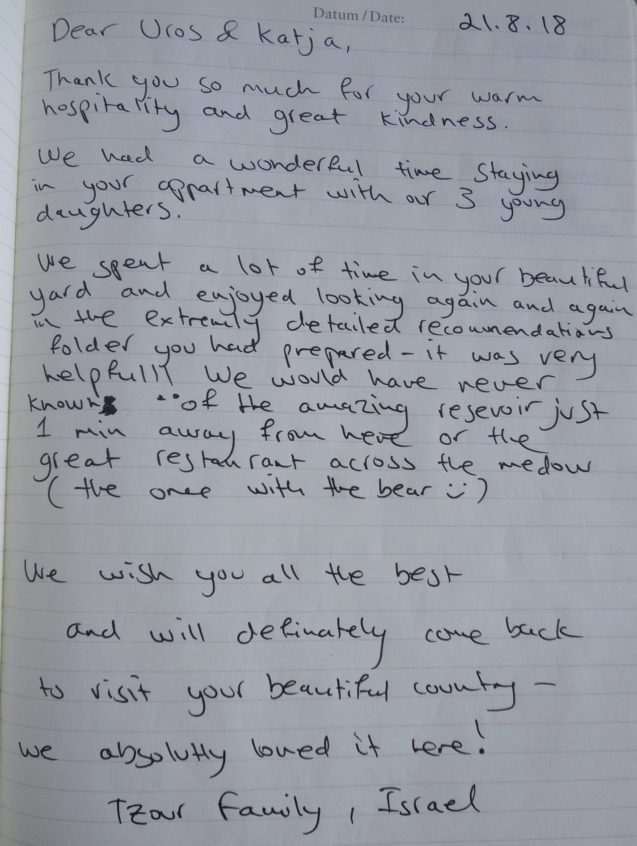 Datum / Date: 21.8.18
Dear Uros & Katja,
Thank you so much for your warm
hospitality and great kindness.
We had a wonderful time staying
in your appartment with our 3 young
daughters.
We spent a lot of time in your beautiful
yard and enjoyed looking again and again
in the extremly detailed recommendations
folder you had prepared - it was very
helpfull! We would have never
known of the amazing resevoir just
1 min away from here or the
great restaurant across the medow
(the once with the bear :))
We wish you all the best
and will definately come back
to visit your beautiful country -
we absolutly loved it here!
Tzour Family, Israel